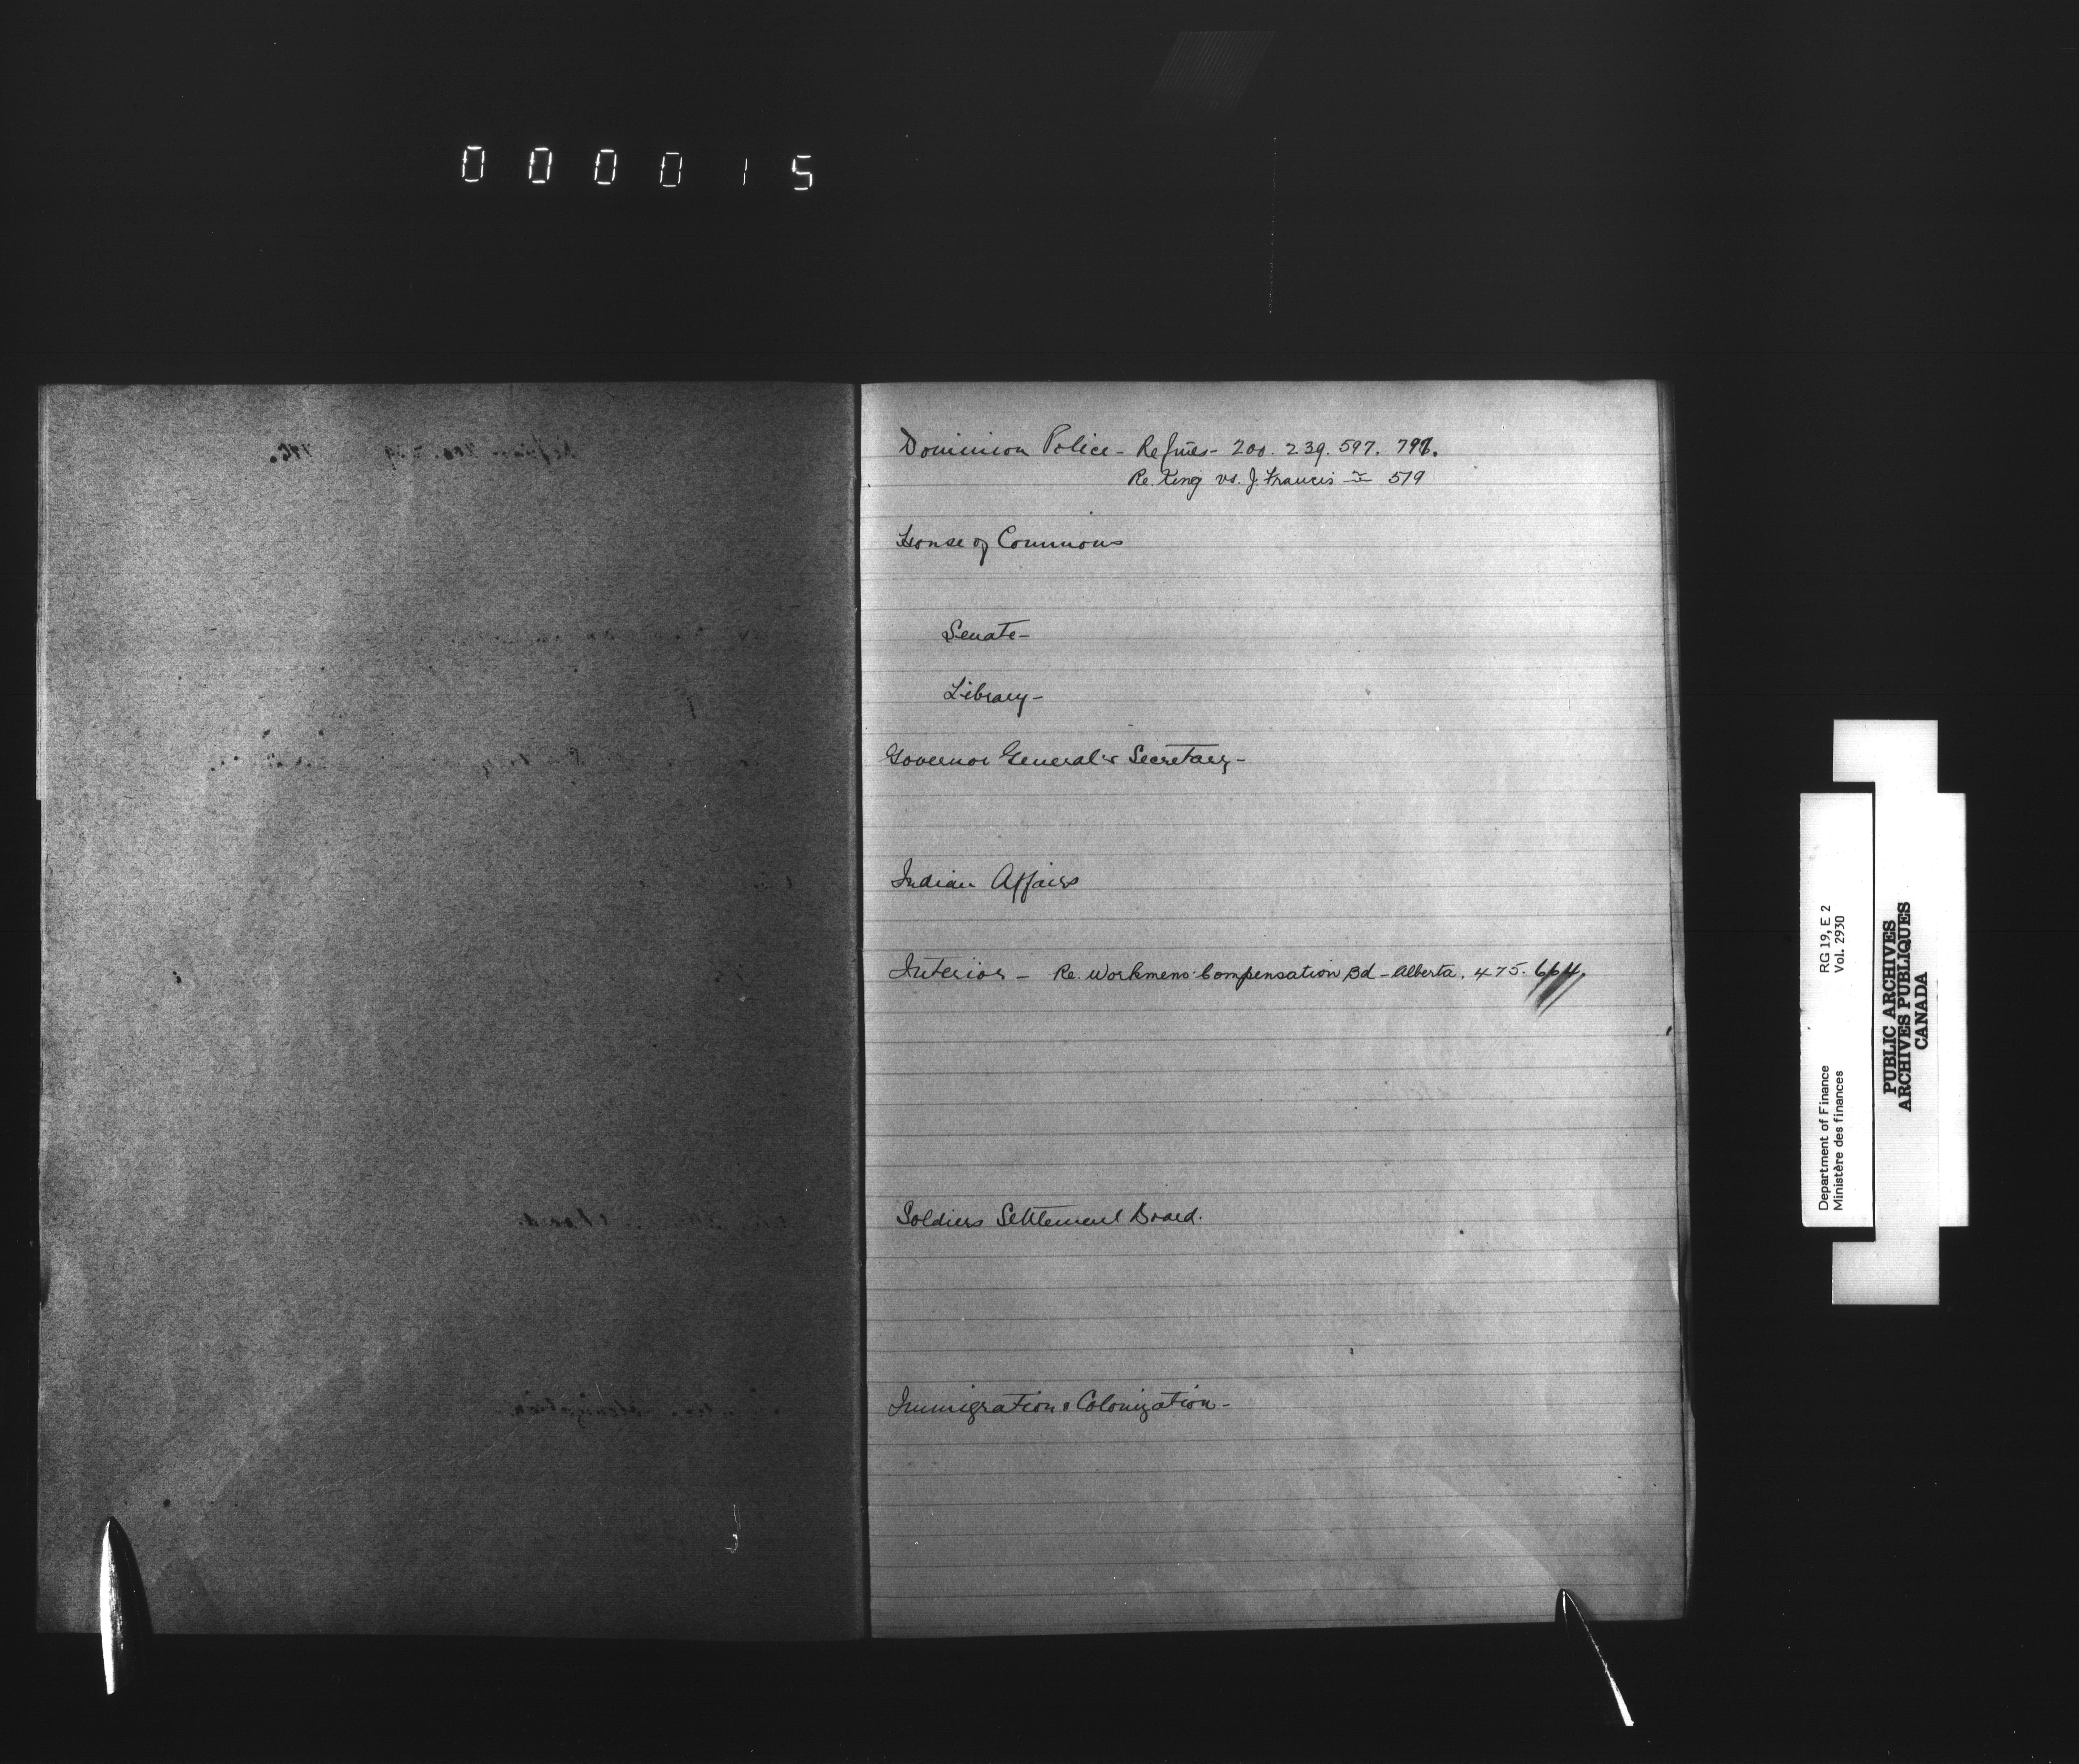 000015
Dominion Police - Refines - 200. 239. 597. 796.
Re. King vs. J. Francis 519
House of Commons
Senate -
Library -
Governor General's Secretary -
Indian Affairs
Interior - Re. Workmens' Compensation Bd - Alberta. 475. 664.
Soldiers Settlement Board.
Immigration & Colonization -
Department of Finance RG 19, E 2
Ministère des finances Vol. 2930
PUBLIC ARCHIVES
ARCHIVES PUBLIQUES
CANADA